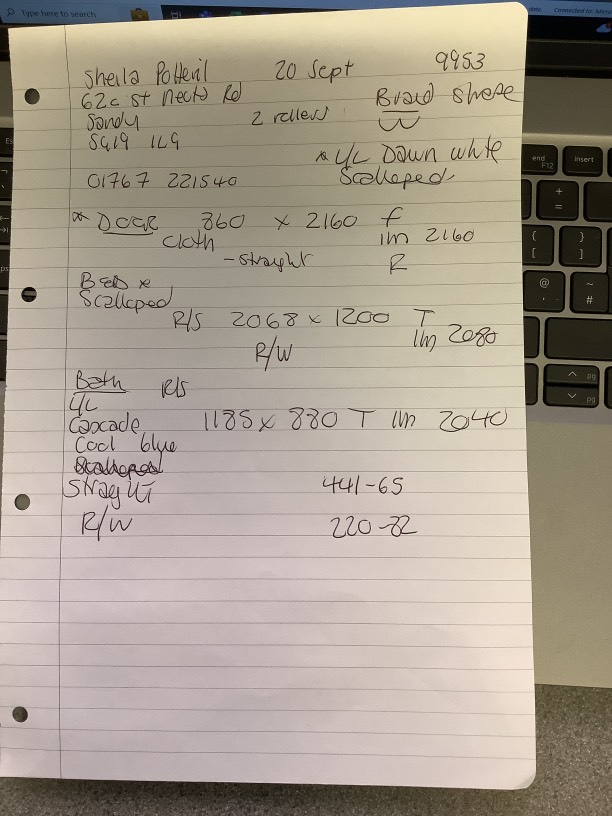 Type here to search
Connected to: Micro
Sheila Potteril 20 Sept 9953
62c st neots Rd Braid shape
Sandy 2 rollers
SG19 1LG * L/L Down white
01767 221540 Scalloped
* Door 860 x 2160 f
Cloth 1m 2160
- straight R
Bed x
Scalloped
R/S 2068 x 1200 T
R/W 1m 2080
Bath R/S
L/L
Cascade 1185 x 880 T 1m 2040
Cool blue
Scalloped
Straight 441-65
R/W 220-82
end
F12
insert
+
=
{
[
}
]
@
'
~
#
PB
PG